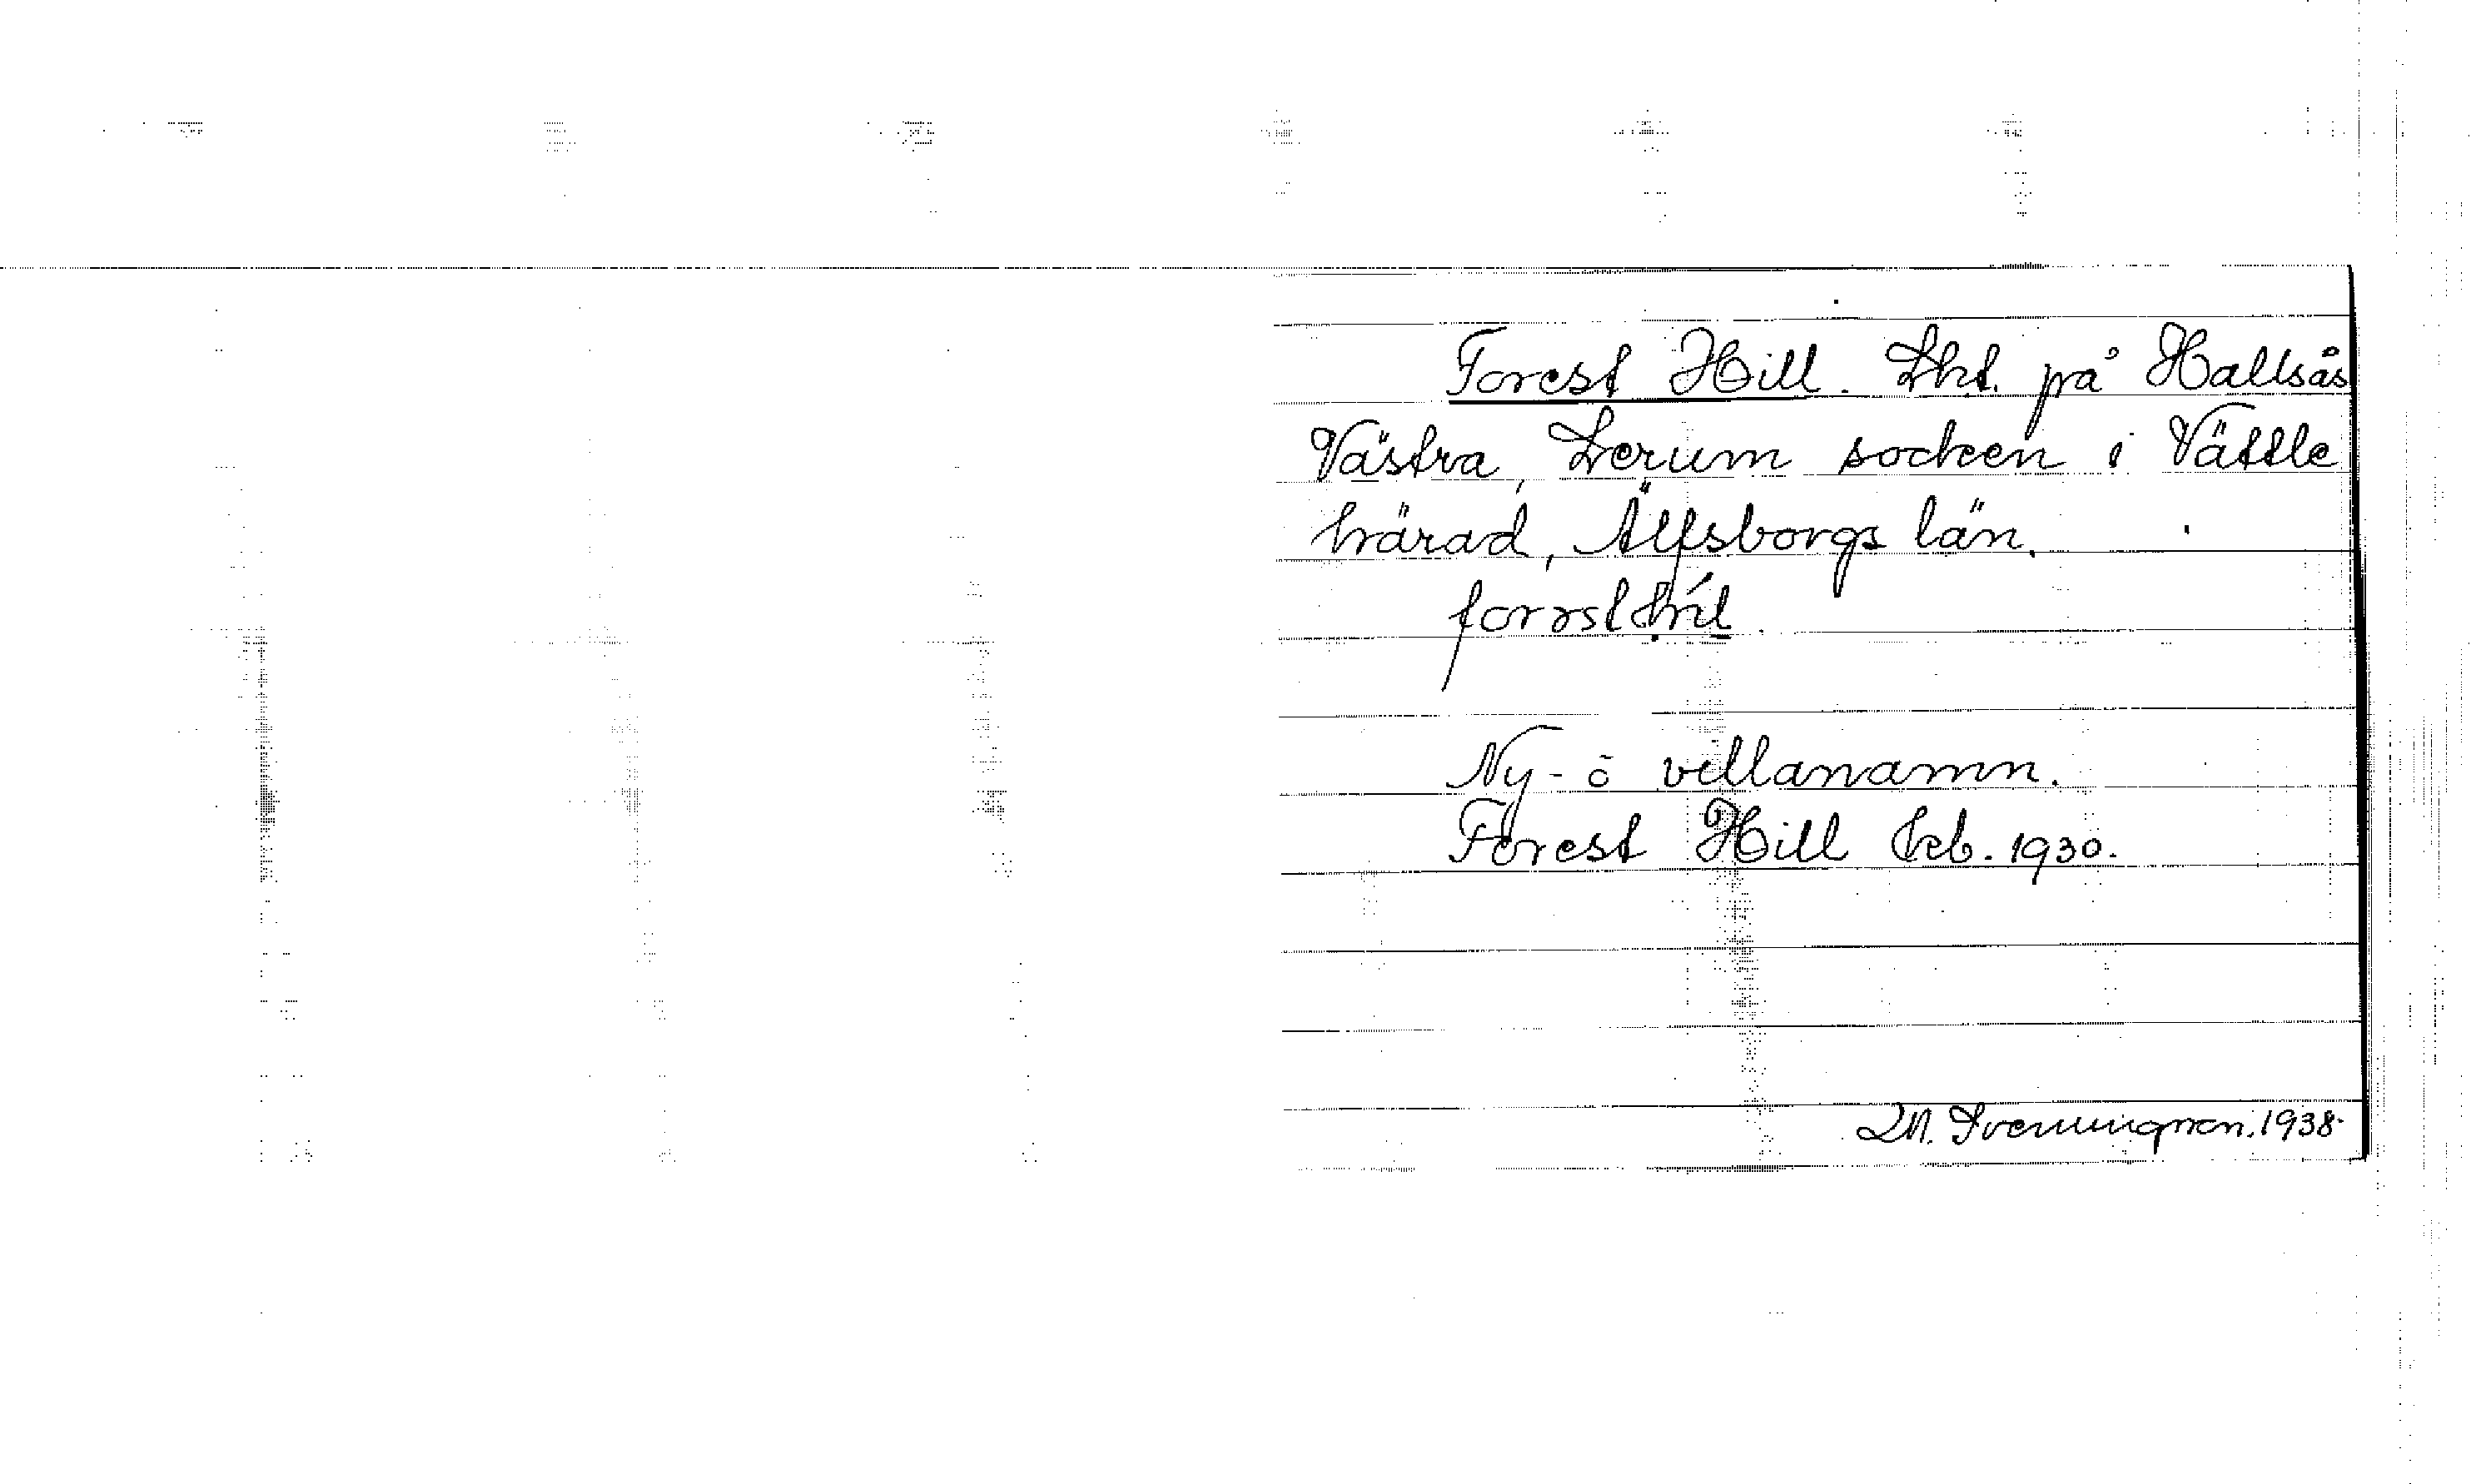 Forest Hill. Lht. på Hallsås
Västra, Lerum socken i Vättle
härad, Älfsborgs län.
Ny- o villanamn.
Forest Hill Jeb. 1930.
1938.